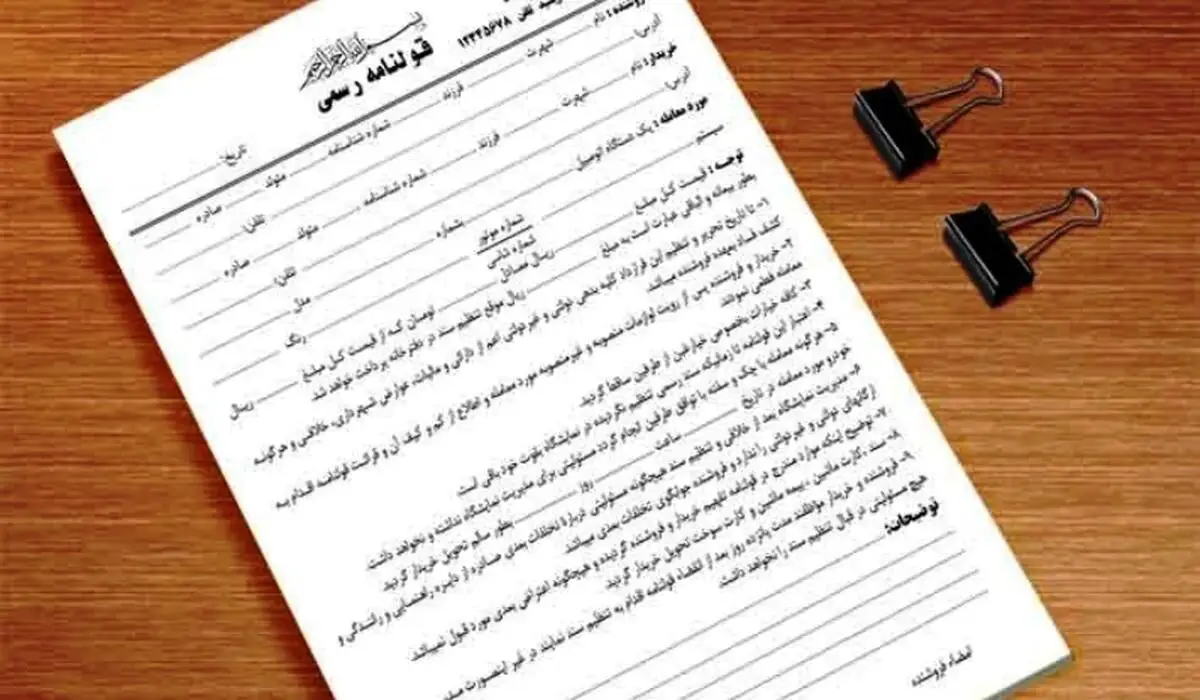 بسم الله الرحمن الرحیم
قولنامه رسمی
تلفن ۱۲۳۴۵۶۷۸
تاریخ:
فروشنده: نام شهرت فرزند شماره شناسنامه متولد صادره
آدرس: تلفن:
خریدار: نام شهرت فرزند شماره شناسنامه متولد صادره
آدرس: تلفن:
مورد معامله: یک دستگاه اتومبیل بشماره مدل
سیستم شماره موتور رنگ
شماره شاسی
توجه: قیمت کل مبلغ ریال معادل تومان که از قیمت کل مبلغ ریال
بطور بیعانه و الباقی عبارت است به مبلغ ریال موقع تنظیم سند در دفترخانه پرداخت خواهد شد.
۱- تا تاریخ تحریر و تنظیم این قرارداد کلیه بدهی دولتی و غیردولتی اعم از دارائی و مالیات، عوارض شهرداری، خلافی و هرگونه
کشف فساد بعهده فروشنده میباشد.
۲- خریدار و فروشنده پس از رویت لوازمات منصوبه و غیرمنصوبه مورد معامله و اطلاع از کم و کیف آن و قرائت قولنامه اقدام به
معامله قطعی نمودند
۳- کافه خیارات بخصوص خیارغبن از طرفین ساقط گردید.
۴- اعتبار این قولنامه تا زمانیکه سند رسمی تنظیم نگردیده در نمایشگاه بقوت خود باقی است.
۵- هرگونه معامله با چک و سفته با توافق طرفین انجام گردد مسئولیتی برای مدیریت نمایشگاه نداشته و نخواهد داشت
خودرو مورد معامله در تاریخ ساعت روز بطور سالم تحویل خریدار گردید.
۶- مدیریت نمایشگاه بعد از خلافی و تنظیم سند هیچگونه مسئولیتی درباره تخلفات بعدی صادره از دایره راهنمایی و رانندگی و
ارگانهای دولتی و غیردولتی را ندارد و فروشنده جوابگوی تخلفات بعدی میباشد.
۷- توضیح اینکه موارد مندرج در قولنامه تفهیم خریدار و فروشنده گردیده و هیچگونه اعتراض بعدی مورد قبول نمیباشد.
۸- سند، کارت ماشین، بیمه ماشین و کارت سوخت تحویل خریدار گردید.
۹- فروشنده و خریدار مؤظفند مدت پانزده روز بعد از انقضاء قولنامه اقدام به تنظیم سند نمایند در غیر اینصورت
هیچ مسئولیتی در قبال تنظیم سند را نخواهد داشت.
توضیحات:
امضاء فروشنده